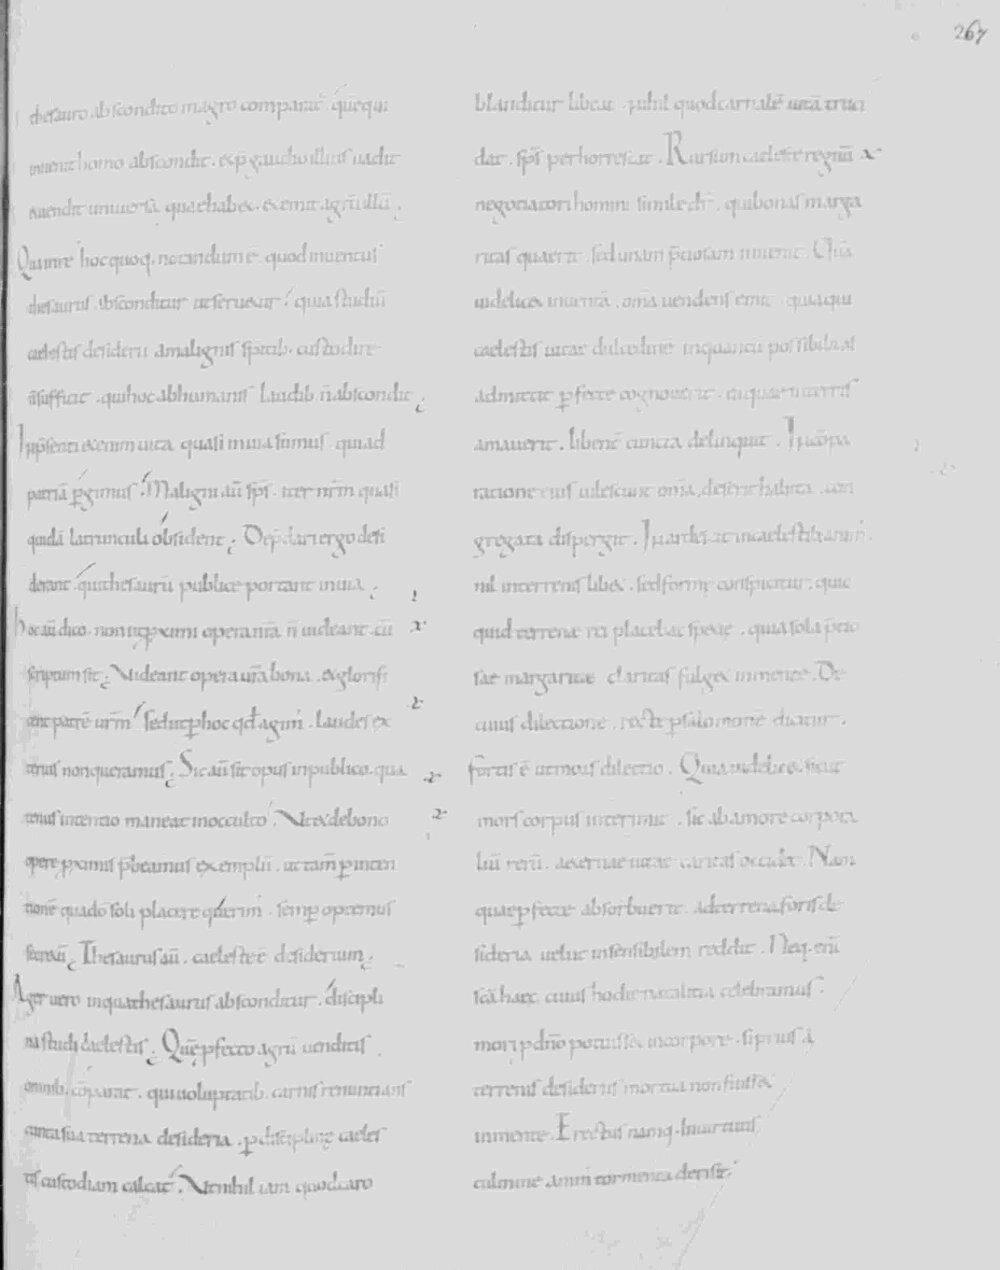 267
thesauro abscondito in agro comparat̄. quē qui
inuenit homo abscondit. & p̄ gaudio illius uadit
& uendit uniuersa quae habet. & emit agrū illū.
Qua in re hoc quoq. notandum ē. quod inuentus
thesaurus absconditur ut seruetur. quia studiū
caelestis desiderii a malignis spiritib. custodire
n̄ sufficit. qui hoc ab humanis laudib. n̄ abscondit;
In p̄senti etenim uita quasi in uia sumus. qua ad
patriā pergimus. Maligni aū sp̄s. iter nr̄m quasi
quidā latrunculi obsident; Dep̄dari ergo desi
derant. qui thesaurū publice portant in uia;
hoc aū dico. non ut proximi opera nr̄a n̄ uideant. cū
scriptum sit; Videant opera ur̄a bona. & glorifi
cent patrē ur̄m. sed ut p hoc qđ agim̄. laudes ex
terius non queramus; Sic aū sit opus in publico. qua
tenus intentio maneat in occulto. Vt & de bono
opere proximis p̄beamus exemplū. ut tam̄ p inten
tionē qua dō soli placere querim̄. semp optemus
secretū; Thesaurus aū. caeleste ē desiderium;
Ager uero in qua thesaurus absconditur. discipli
na studii caelestis; Quē pfecto agrū uenditis
omnib. cōparat. qui uoluptatib. carnis renuntians
cuncta sua terrena desideria. p disciplinę caeles
tis custodiam calcat. Vt nihil iam quod caro
blanditur libeat. nihil quod carnalē uitā truci
dat. sp̄s perhorrescat. Rursum caeleste regnū
negotiatori homini simile dr̄. qui bonas marga
ritas quaerit. sed unam p̄tiosam inuenit. Quā
uidelicet inuentā. om̄a uendens emit. quia qui
caelestis uitae dulcedinē inquantū possibilitas
admittit pfecte cognouerit. ea quae in terris
amauerat. libent̄ cuncta derelinquit. In cōpa
ratione eius uilescunt om̄a. deserit habita. con
gregata dispergit. Inardescit in caelestib. anim̄.
nil in terrenis libet. sed formę conspicitur. quic
quid terrenae rei placebat specie. quia sola p̄tio
sae margaritae claritas fulget in mente. De
cuius dilectione. recte p salomonē dicitur.
fortis ē ut mors dilectio. Quia uidelicet. sicut
mors corpus interimit. sic ab amore corpora
liū rerū. aeternae uitae caritas occidit. Nam
quae pfecte absorbuerit. ad terrena foris de
sideria uelut insensibilem reddit. Neq. enī
sc̄a haec. cuius hodie natalicia celebramus.
mori p dn̄o potuisset in corpore. si prius a
terrenis desideriis mortua non fuisset
in mente. Erectus namq. in uirtutis
culmine anim̄ tormenta derisit.